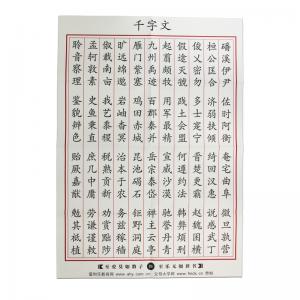 千字文
磻溪伊尹 佐时阿衡 奄宅曲阜 微旦孰营
桓公匡合 济弱扶倾 绮回汉惠 说感武丁
俊乂密勿 多士寔宁 晋楚更霸 赵魏困横
假途灭虢 践土会盟 何遵约法 韩弊烦刑
起翦颇牧 用军最精 宣威沙漠 驰誉丹青
九州禹迹 百郡秦并 岳宗泰岱 禅主云亭
雁门紫塞 鸡田赤城 昆池碣石 钜野洞庭
旷远绵邈 岩岫杳冥 治本于农 务兹稼穑
俶载南亩 我艺黍稷 税熟贡新 劝赏黜陟
孟轲敦素 史鱼秉直 庶几中庸 劳谦谨敕
聆音察理 鉴貌辨色 贻厥嘉猷 勉其祗植
至爱莫如教子 至乐无如读书